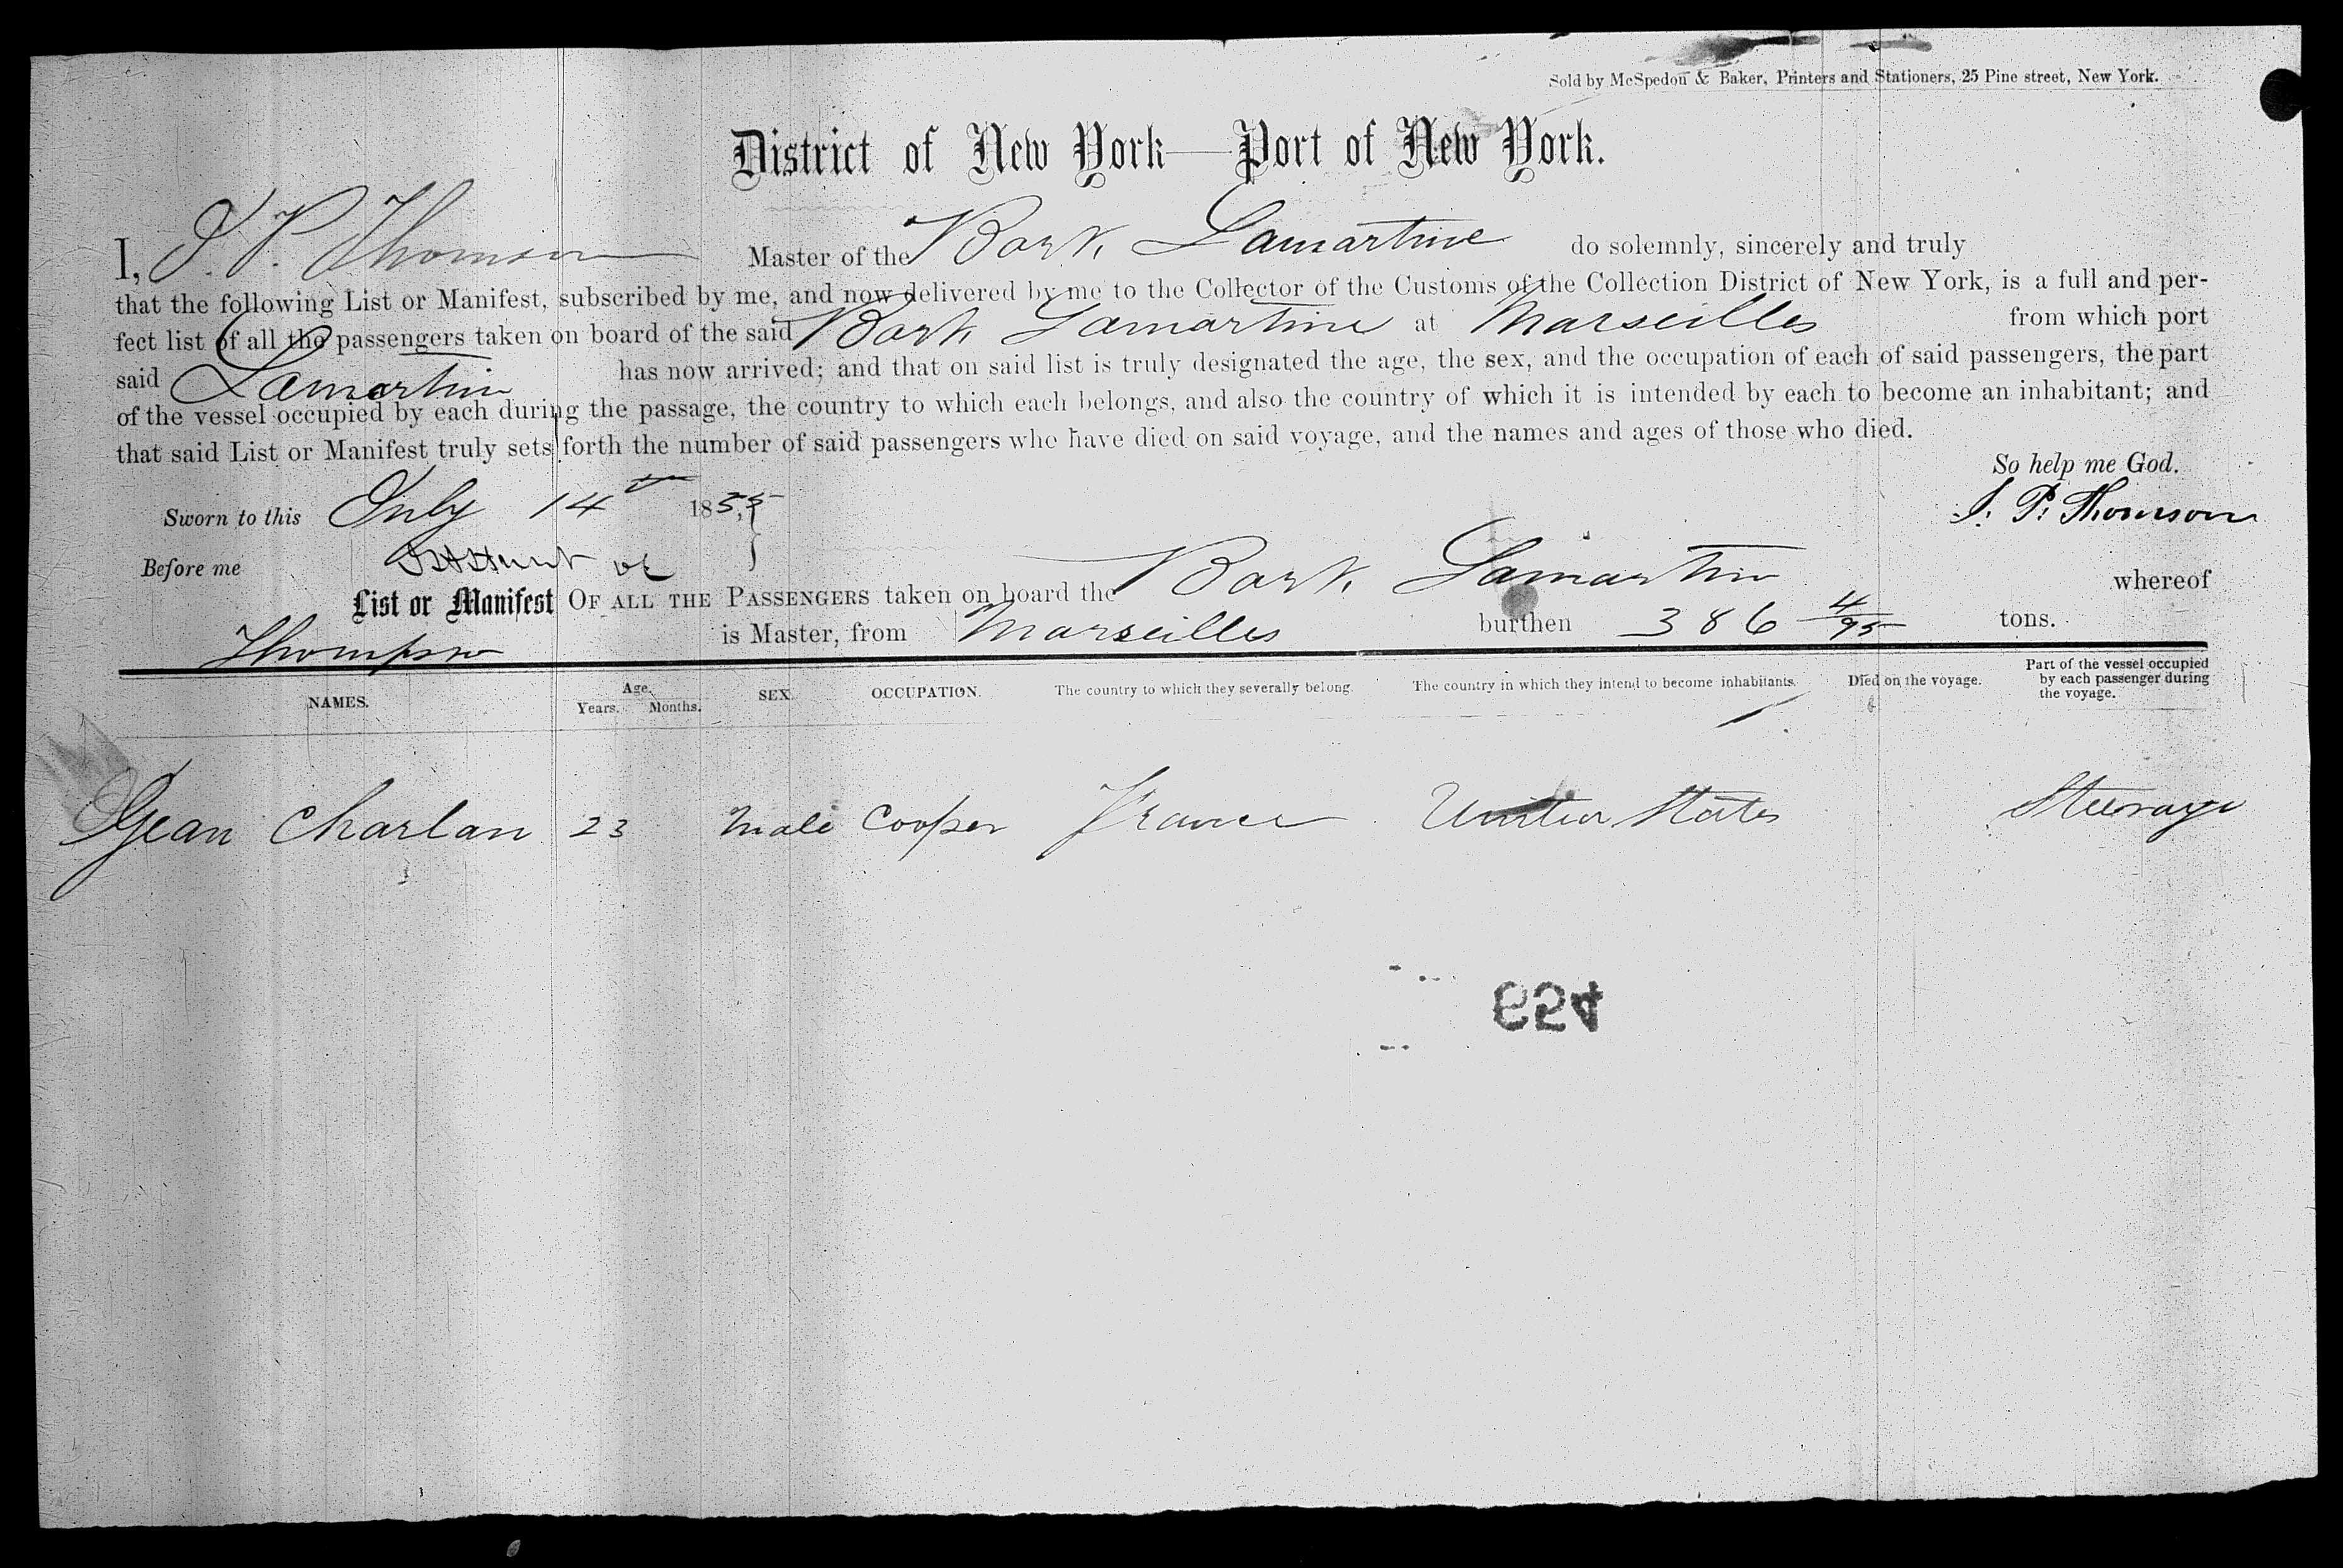 Sold by McSpedon & Baker, Printers and Stationers, 25 Pine street, New York.
District of New York—Port of New York.
I, J. P. Thomson Master of the Bark Lamartine do solemnly, sincerely and truly
that the following List or Manifest, subscribed by me, and now delivered by me to the Collector of the Customs of the Collection District of New York, is a full and per-
fect list of all the passengers taken on board of the said Bark Lamartine at Marseilles from which port
said Lamartine has now arrived; and that on said list is truly designated the age, the sex, and the occupation of each of said passengers, the part
of the vessel occupied by each during the passage, the country to which each belongs, and also the country of which it is intended by each to become an inhabitant; and
that said List or Manifest truly sets forth the number of said passengers who have died on said voyage, and the names and ages of those who died.
So help me God.
Sworn to this July 14th 1855, J. P. Thomson
Before me
List or Manifest OF ALL THE PASSENGERS taken on board the Bark Lamartine whereof
Thompson is Master, from Marseilles burthen 386 4/95 tons.
NAMES. Age. Years. Months. SEX. OCCUPATION. The country to which they severally belong. The country in which they intend to become inhabitants. Died on the voyage. Part of the vessel occupied by each passenger during the voyage.
Gean Charlan 23 Male Cooper France United States Steerage